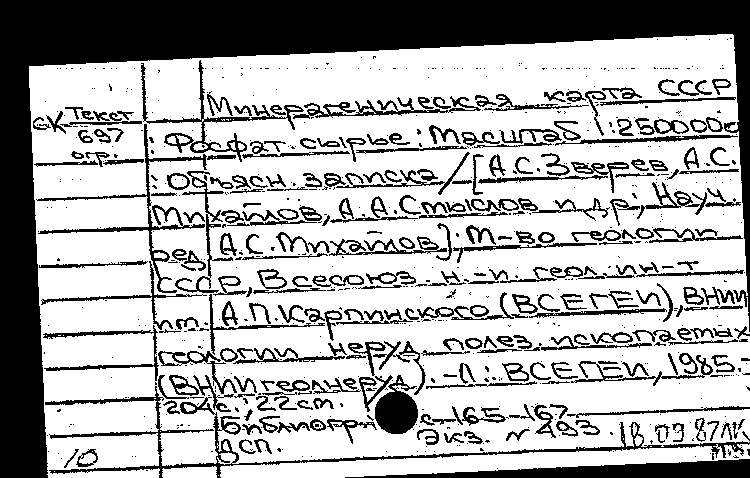 Минерагеническая карта СССР
СК Текст
697
огр.
: Фосфат. сырье : Масштаб 1:2500000
: Объясн. записка / [А.С. Зверев, А.С.
Михайлов, А.А. Смыслов и др.; Науч.
ред. А.С. Михайлов]; М-во геологии
СССР, Всесоюз. н.-и. геол. ин-т
им. А.П. Карпинского (ВСЕГЕИ), ВНИИ
геологии неруд. полез. ископаемых
(ВНИИгеолнеруд). -Л.: ВСЕГЕИ, 1985.-
204с.; 22 см.
Библиогр. с. 165-167
ДСП. Экз. № 493. 18.09.87 ЛК
10